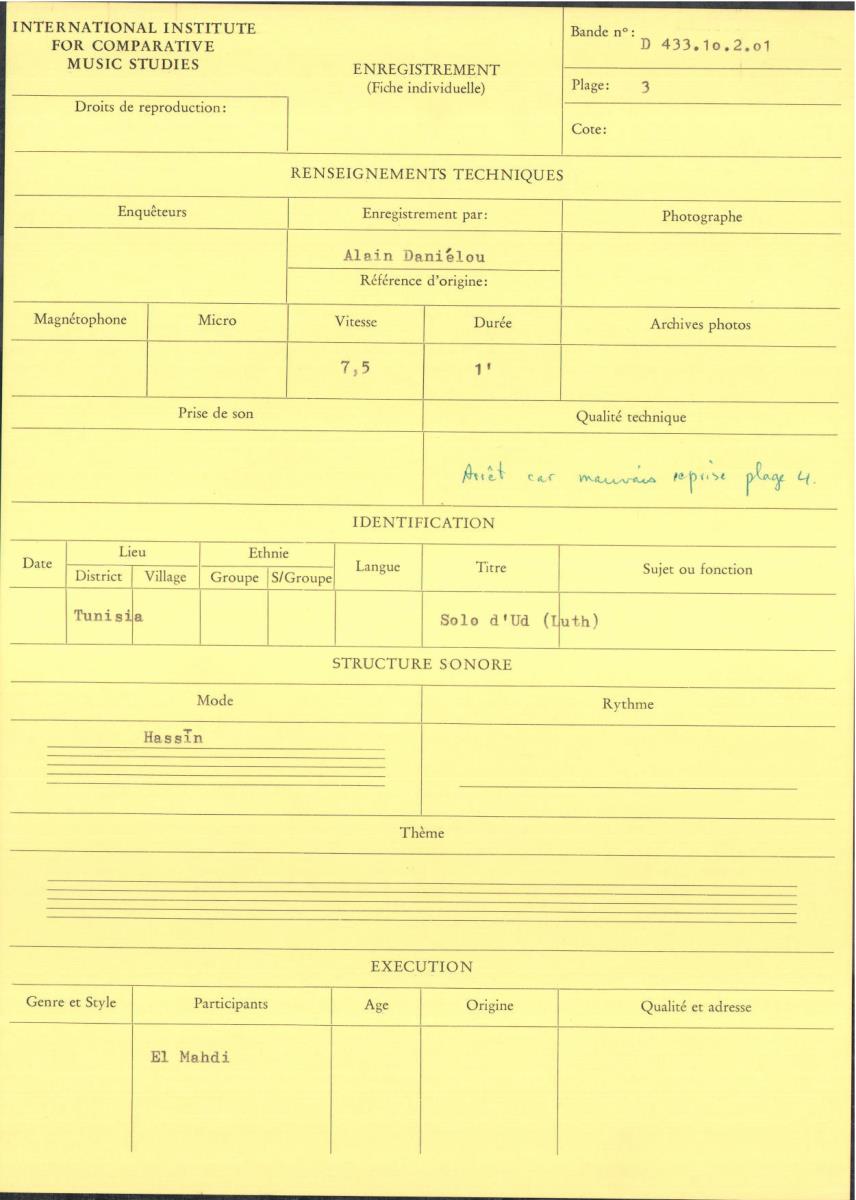 INTERNATIONAL INSTITUTE
FOR COMPARATIVE
MUSIC STUDIES
Droits de reproduction:
ENREGISTREMENT
(Fiche individuelle)
Bande n°: D 433.1o.2.o1
Plage: 3
Cote:
RENSEIGNEMENTS TECHNIQUES
Enquêteurs
Enregistrement par:
Photographe
Alain Daniélou
Référence d'origine:
Magnétophone Micro Vitesse Durée Archives photos
7,5 1'
Prise de son Qualité technique
Arrêt car mauvais reprise plage 4.
IDENTIFICATION
Date Lieu Ethnie Langue Titre Sujet ou fonction
District Village Groupe S/Groupe
Tunisia Solo d'Ud (Luth)
STRUCTURE SONORE
Mode Rythme
Hassīn
Thème
EXECUTION
Genre et Style Participants Age Origine Qualité et adresse
El Mahdi